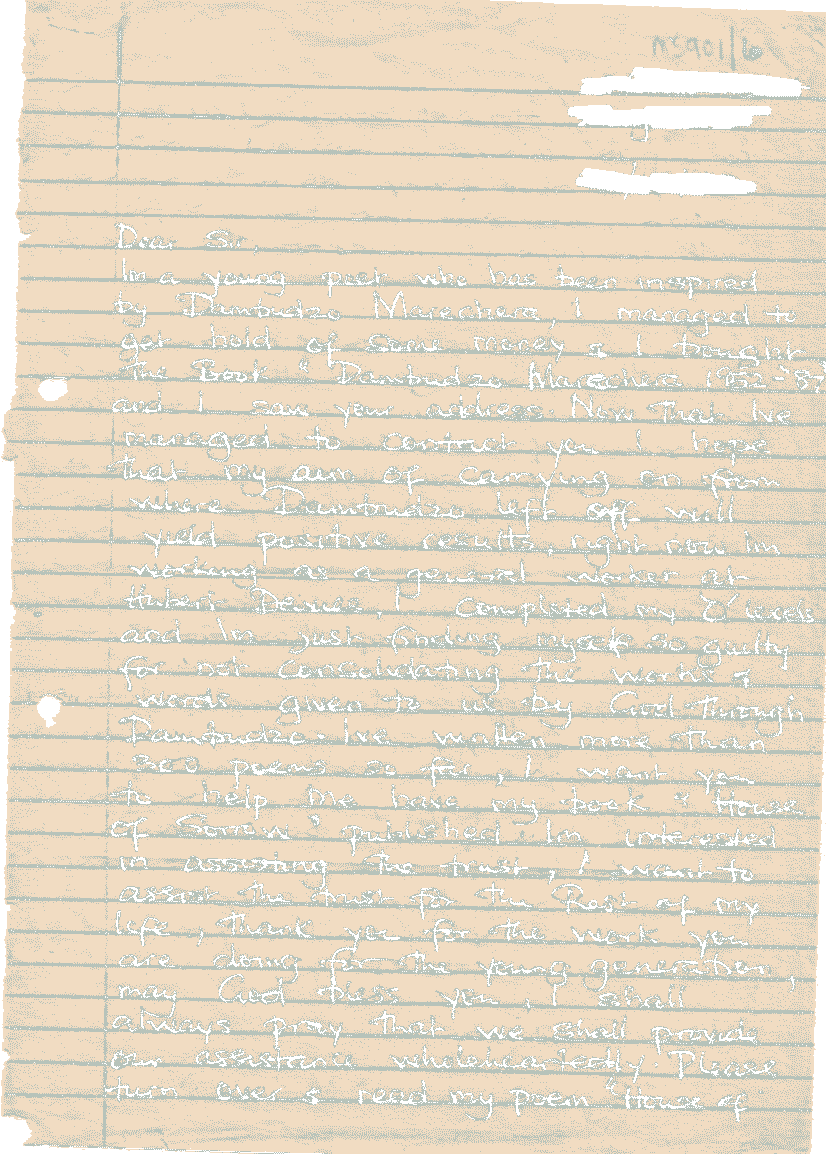 MS901/6
Dear Sir,
Im a young poet who has been inspired
by Dambudzo Marechera, I managed to
get hold of some money & I bought
The Book "Dambudzo Marechera 1952-'87"
and I saw your address. Now that Ive
managed to contact you I hope
that my aim of carrying on from
where Dambudzo left off will
yield positive results, right now Im
working as a general worker at
Device, I completed my O'levels
and Im just finding myself so guilty
for not consolidating the works &
words given to us by God through
Dambudzo. Ive written more than
300 poems so far, I want you
to help me have my book "House
of Sorrow" published. Im interested
in assisting the trust, I want to
assist the trust for the Rest of my
life, thank you for the work you
are doing for the young generation,
may God bless you, I shall
always pray that we shall provide
our assistance wholeheartedly. Please
turn over & read my poem "House of